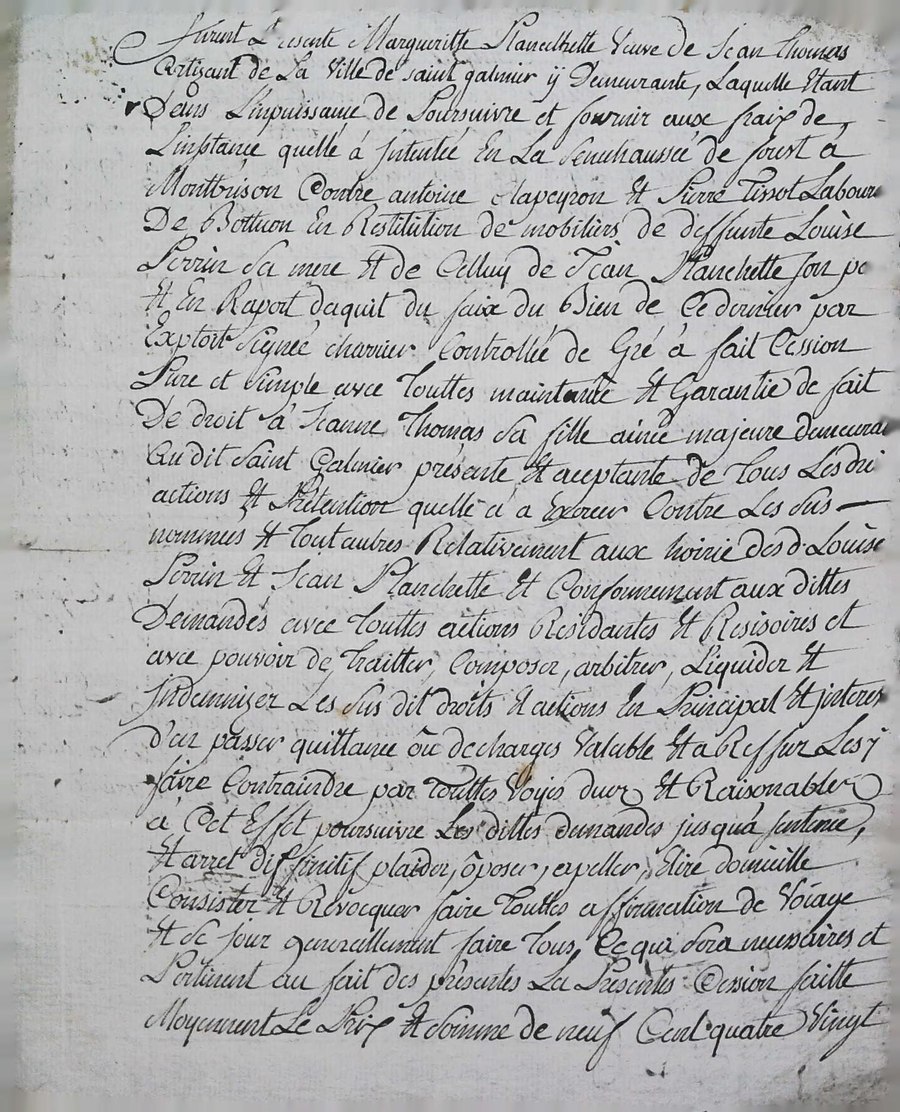 furent Presente Margueritte Plancelhette Veuve de Jean Thomas
Artisant de La Ville de saint galmier ÿ Demeurante, Laquelle Etant
Dans Linpuissance de Poursuivre et fournir aux fraix de
Linstance quelle à Intentée En La Senechaussée de forest à
Montbrison Contre antoine Clapeyron Et Pierre Tissot Laboure
De Bothéon En Restitution de mobiliers de deffunte Louise
Perrin Sa mere Et de Celluy de Jean Planchette son pe
Et En Raport daquit du faix du Bien de Ce dernier par
Exploit Signée charvier Controllée de Gré à fait Cession
Pure et Simple avec Touttes maintenüe Et Garantie de fait
De droit à Jeanne Thomas Sa fille ainée majeure demeura
Au dit Saint Galmier présente Et aceptante de Tous Les dri
actions Et Prétention quelle a à Exercer Contre Les Sus
nommées Et Tout autres Relativement aux hoirie des d. Louise
Perrin Et Jean Planchette Et Conformement aux dittes
Demandes avec Touttes actions Résidantes Et Resisoires et
avec pouvoir de Traitter, Composer, arbitrer, Liquider Et
Indemnizer Les Sus dit droits Et actions En Principal Et interes
D'en passer quittance ôu decharges Valable Et a Reffur Les ÿ
faire Contraindre par Touttes Voyes dues Et Raisonables
à Cet Effet poursuivre Les dittes demandes jusqu'à sentence,
Et arret Diffinitif plaider, ôposer, apeller, Elire domicille
Consister Et Revocquer faire Touttes affirmation de Voiage
Et Se jour generallement faire Tous, Ce qui Sera necessaires et
Pertinent au fait des présentes La Presentes Cession faitte
Moyennent Le Prix Et Somme de neuf Cent quatre Vingt